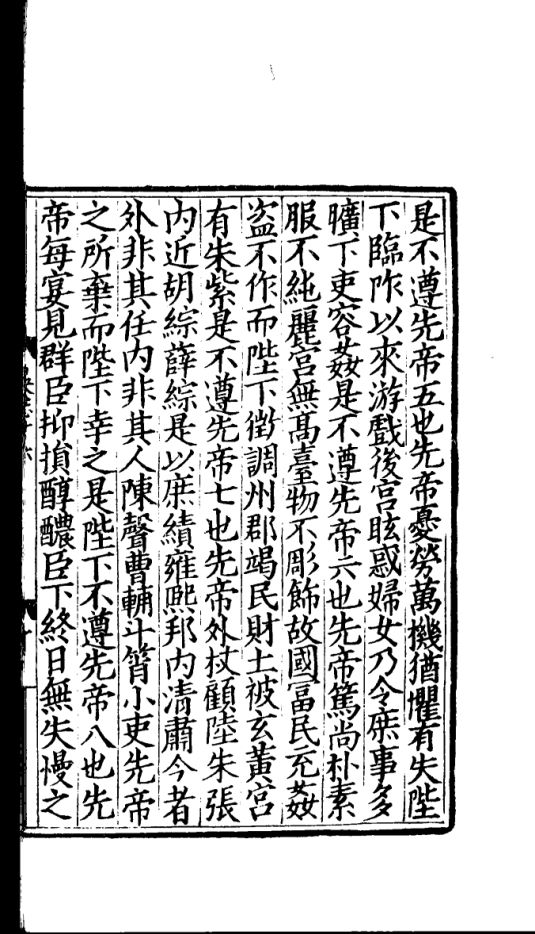 是不遵先帝五也先帝憂勞萬機猶懼有失陛
下臨阼以來游戲後宮眩惑婦女乃令庶事多
曠下吏容姦是不遵先帝六也先帝篤尚朴素
服不純麗宮無髙臺物不彫飾故國富民充姦
盗不作而陛下徴調州郡竭民財土被玄黃宮
有朱紫是不遵先帝七也先帝外杖顧陸朱張
内近胡綜薛綜是以庶績雍熙邦内清肅今者
外非其任内非其人陳聲曹輔斗筲小吏先帝
之所棄而陛下幸之是陛下不遵先帝八也先
帝每宴見群臣抑損醇醲臣下終日無失慢之